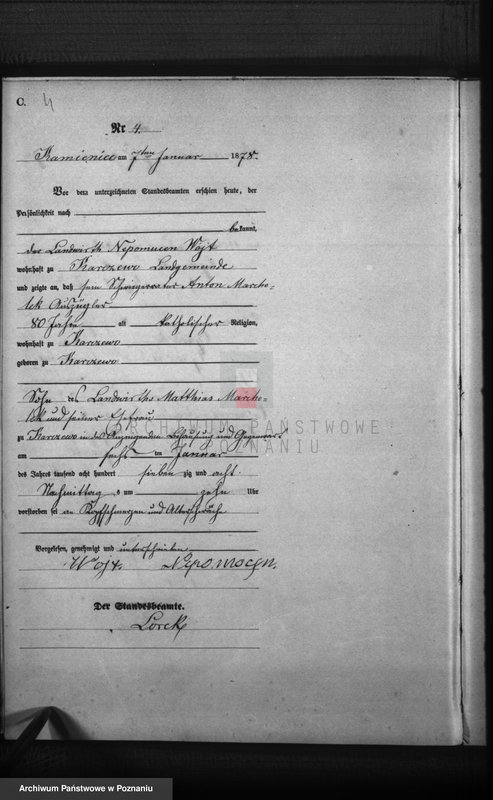 C. 4
Nr 4.
Kamienice am 7ten Januar 1878.
Vor dem unterzeichneten Standesbeamten erschien heute, der
Persönlichkeit nach
bekannt,
der Landwirth Nepomucen Wojt
wohnhaft zu Karczewo Landgemeinde
und zeigte an, daß sein Schwiegervater Anton Marcho-
lek Auszügler
80 Jahre alt katholischer Religion,
wohnhaft zu Karczewo
geboren zu Karczewo
Sohn des Landwirths Matthias Marcho-
lek und seiner Ehefrau
zu Karczewo in des Anzeigenden Behausung und Gegenwart
am sechs ten Januar
des Jahres tausend acht hundert sieben zig und acht
Nachmittags um zehn Uhr
verstorben sei an Kopfschmerzen und Altersschwäche
Vorgelesen, genehmigt und unterschrieben
Wojt Nepomocyn.
Der Standesbeamte.
Lorck
ARCHIWUM PAŃSTWOWE
W POZNANIU
Archiwum Państwowe w Poznaniu